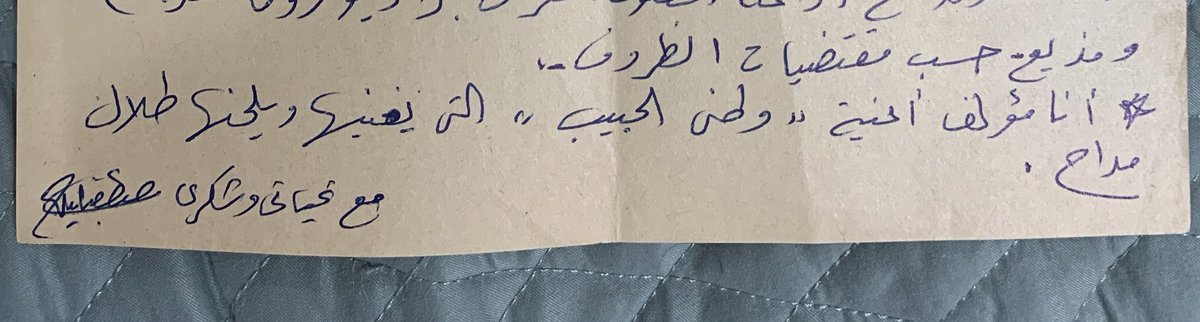 ومذيع حسب مقتضيات الظروف..
* أنا مؤلف أغنية ,, وطني الحبيب ,, التي يغنيها ويلحنها طلال
مداح .
مع تحياتي وشكري